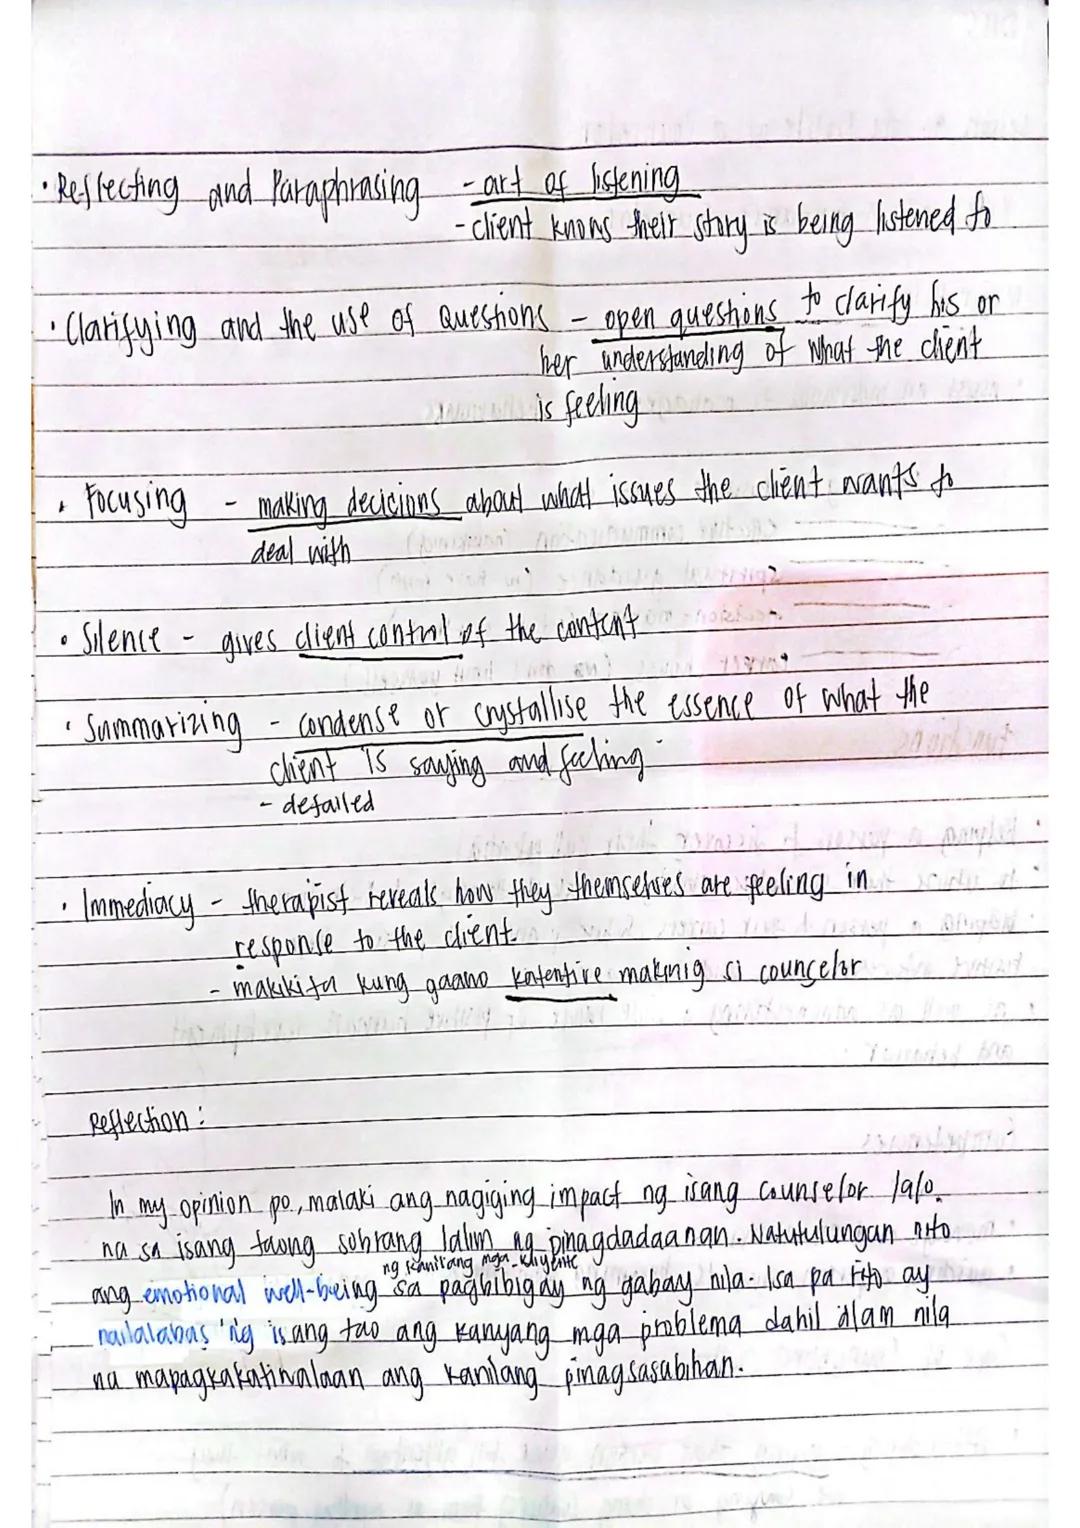 • Reflecting and Paraphrasing - art of listening
- client knows their story is being listened to
• Clarifying and the use of Questions - open questions to clarify his or
her understanding of what the client
is feeling
• Focusing - making decicions about what issues the client wants to
deal with
• Silence - gives client control of the content
• Summarizing - condense or crystallise the essence of what the
client is saying and feeling
- detailed
• Immediacy - therapist reveals how they themselves are feeling in
response to the client.
- makikita kung gaano kaintentive makinig si councelor
Reflection:
In my opinion po, malaki ang nagiging impact ng isang counselor lalo
na sa isang taong sobrang lalim ng pinagdadaanan. Natutulungan nito
ng kanilang mga kliyente
ang emotional well-being sa pagbibigay ng gabay nila. Isa pa rito ay
nailalabas ng isang tao ang kanyang mga problema dahil alam nila
na mapagkakatiwalaan ang kanilang pinagsasabihan.